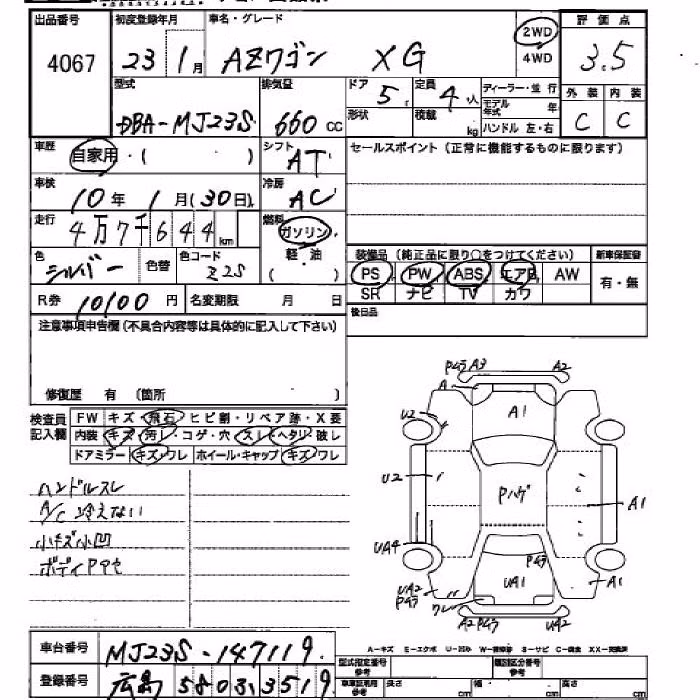 出品番号 初度登録年月 車名・グレード 評価点
4067 23 1月 AZワゴン XG 2WD 4WD 3.5
型式 排気量 ドア 定員 ディーラー・並行 外装 内装
DBA-MJ23S 660cc 5 4人 モデル年式 年 C C
形状 積載 kg ハンドル 左・右
車歴 自家用・( ) シフト AT セールスポイント(正常に機能するものに限ります)
車検 10年 1月(30日) 冷房 AC
走行 4万7千644km 燃料 ガソリン・軽・油 ( )
色 シルバー 色替 色コード Z2S 装備品(純正品に限り○をつけてください) 新車保証書
PS PW ABS エアB AW 有・無
SR ナビ TV カワ
R券 10100円 名変期限 月 日 後日品
注意事項申告欄(不具合内容等は具体的に記入して下さい)
修復歴 有 (箇所 )
検査員記入欄 FW キズ・飛石・ヒビ割・リペア跡・X要
内装 キズ・汚し・コゲ・穴・スレ・ヘタリ・破し
ドアミラー キズ・ワレ ホイール・キャップ キズ・ワレ
ハンドルスレ
A/C 冷えない
小キズ小凹
ボディPアセ
Pムラ A3 A2
A A1
U2
U2 Pハゲ A1
UA4 Pムラ
UA2 Pムラ UA1 A1
ワレ
A2 Pムラ UA2
A-キズ E-エクボ U-凹み W-補修跡 S-サビ C-腐食 XX-交換済
車台番号 MJ23S-147119
型式指定番号 参考 類別区分番号 参考
登録番号 広島 580 さ 3519
車車証記載 参考 長さ cm 幅 cm 高さ cm